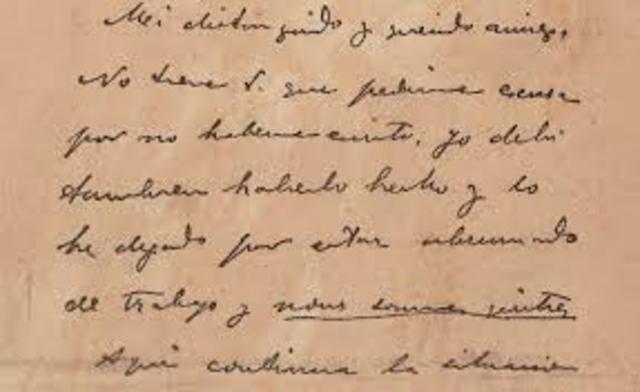 Mi distinguido y querido amigo,
No tiene V. que pedirme excusa
por no haberme escrito, yo debí
tambien haberlo hecho y lo
he dejado por estar abrumado
de trabajo y nous sommes quittes
Aqui continua la situacion